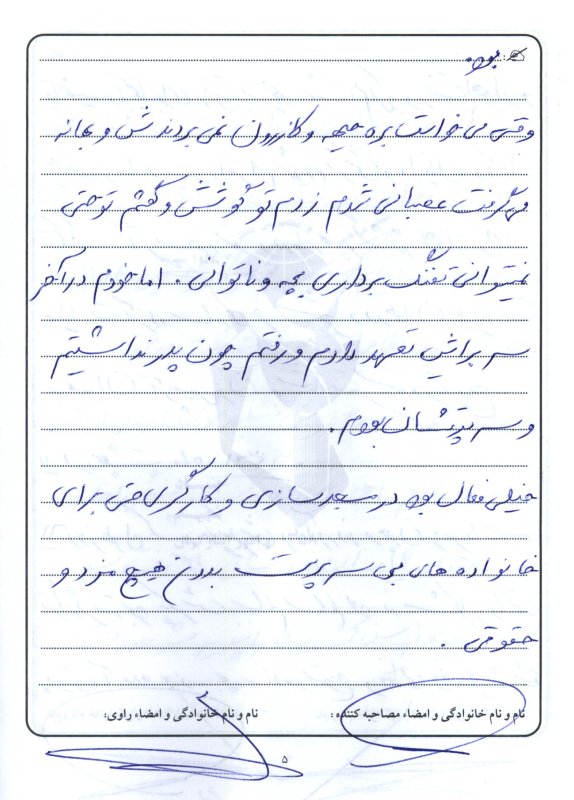 ج: بود.
وقتی می خواست بره جبهه و کازرون نمی بردندش و بهانه
می گرفت عصبانی شدم زدم تو گوشش و گفتم تو حتی
نمیتوانی تفنگ برداری بچه و ناتوانی. اما خودم در آخر
سر برایش تعهد دادم و رفتم چون پدر نداشتیم
و سرپرتشان بودم.
خیلی فعال بود در مسجدسازی و کارگری حتی برای
خانواده های بی سرپرست بدون هیچ مزد و
حقوقی.
نام و نام خانوادگی و امضاء مصاحبه کننده: نام و نام خانوادگی و امضاء راوی:
۵